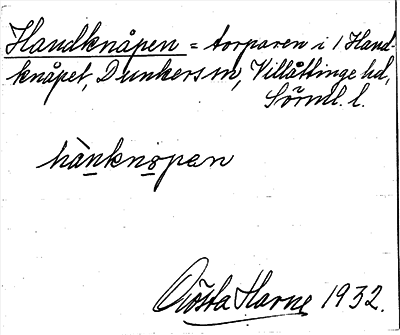 Handknåpen = torparen i / Hand-
knåpet, Dunkers sn, Villåttinge hd,
Sörml. l.
hànknopen
Gösta Harne 1932.